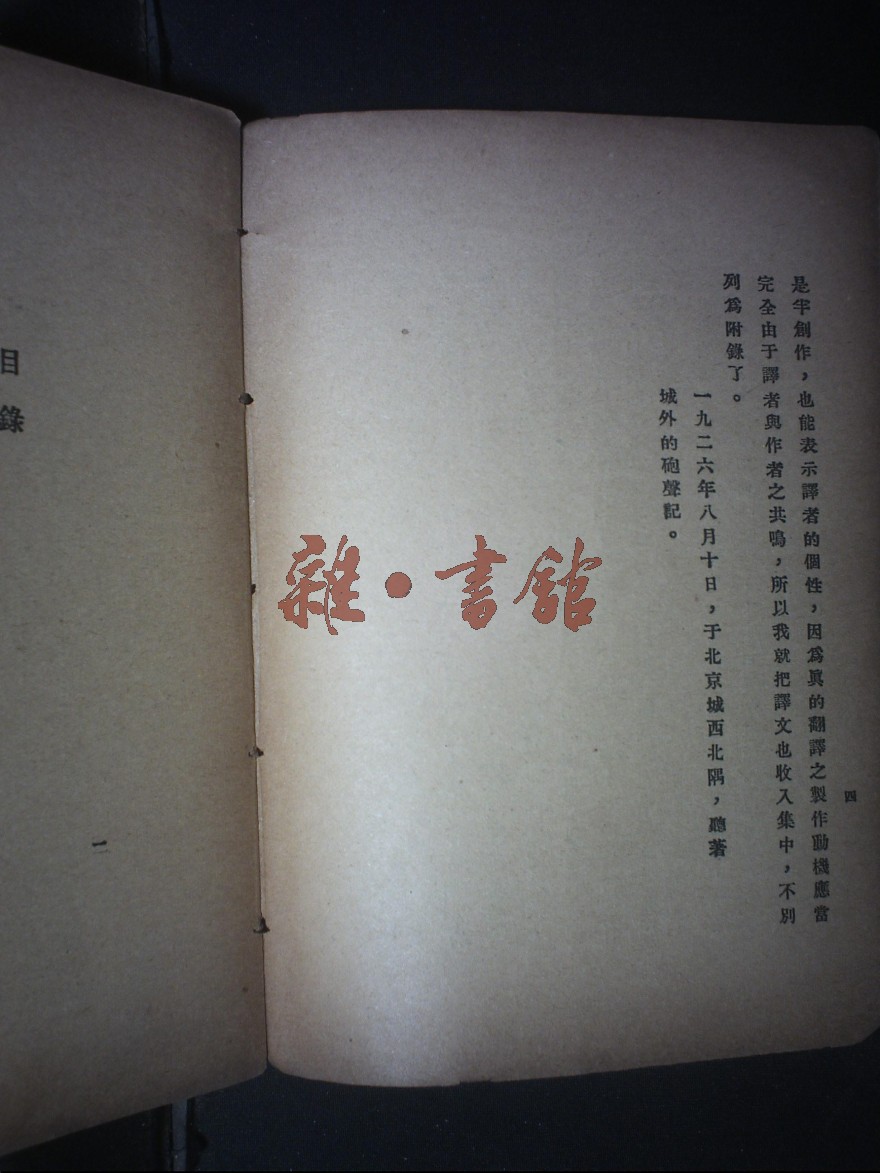 是半創作，也能表示譯者的個性，因爲眞的翻譯之製作動機應當
完全由于譯者與作者之共鳴，所以我就把譯文也收入集中，不別
列爲附錄了。
一九二六年八月十日，于北京城西北隅，聽著
城外的砲聲記。
四
雜·書館
目錄
一